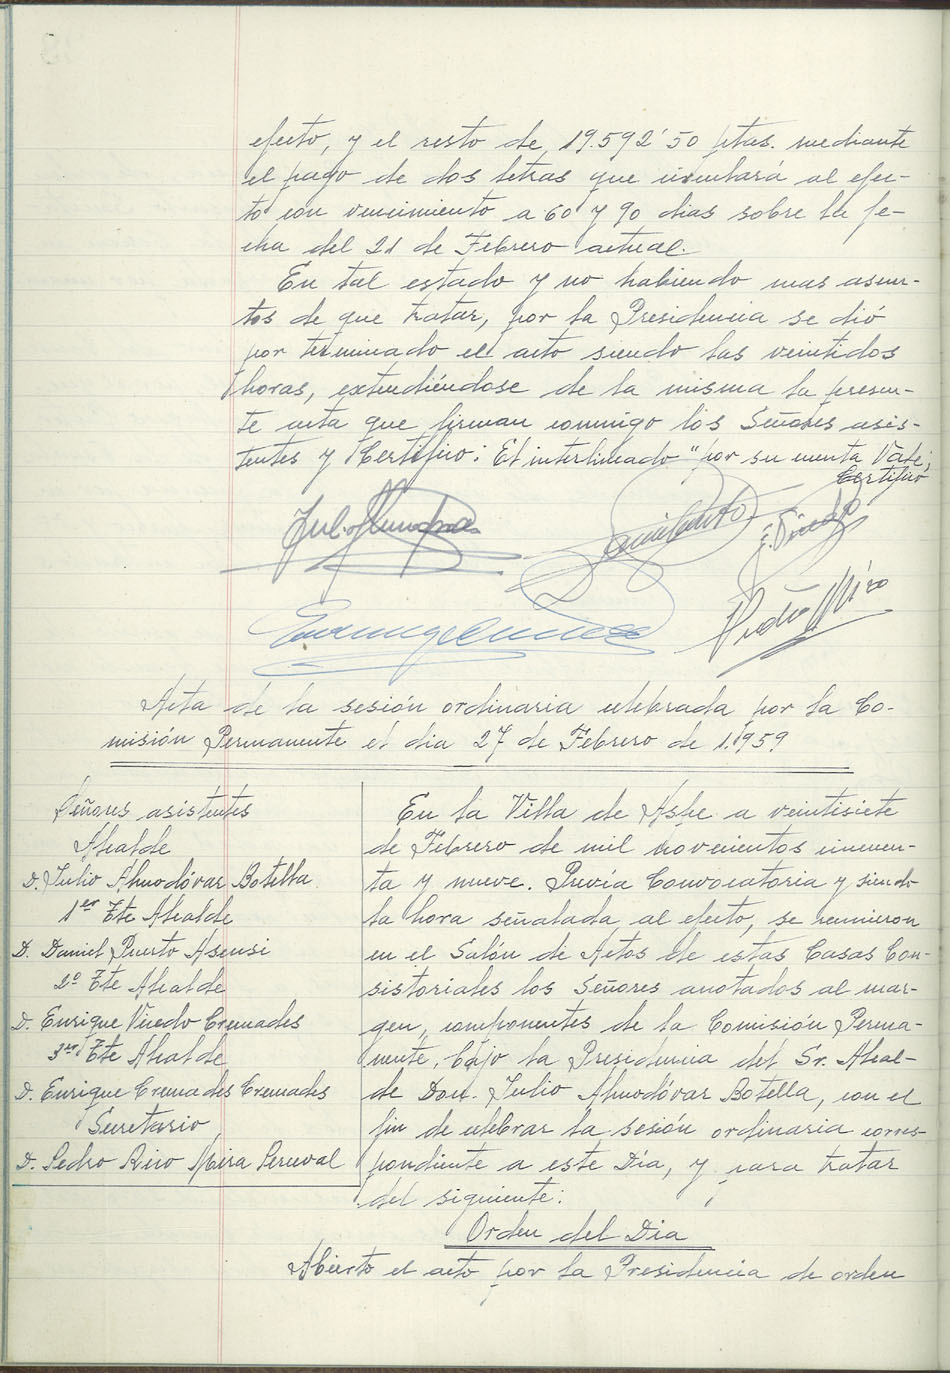 efecto, y el resto de 19.592'50 ptas. mediante
el pago de dos letras que
to con vencimiento a 60 y 90 dias sobre la fe-
cha del 21 de Febrero actual.
En tal estado y no habiendo mas asun-
tos de que tratar, por la Presidencia se dió
por terminado el acto siendo las veintidos
horas, extendiéndose de la misma la presen-
te acta que firman conmigo los Señores asis-
tentes y Certifico: El interlineado "por su cuenta Vale;
Certifico
Pedro Miro
Acta de la sesión ordinaria celebrada por la Co-
misión Permanente el dia 27 de Febrero de 1.959
Señores asistentes
Alcalde
D. Julio Almodóvar Botella
1er Tte Alcalde
D. Daniel Puerto Asensi
2º Tte Alcalde
D. Enrique Vicedo Cremades
3er Tte Alcalde
D. Enrique Cremades Cremades
Secretario
D. Pedro Miro Mira Perceval
En la Villa de Aspe a veintisiete
de Febrero de mil novecientos cincuen-
ta y nueve. Previa Convocatoria y siendo
la hora señalada al efecto, se reunieron
en el Salón de Actos de estas Casas Con-
sistoriales los Señores anotados al mar-
gen, componentes de la Comisión Perma-
nente, bajo la Presidencia del Sr. Alcal-
de Don. Julio Almodóvar Botella, con el
fin de celebrar la sesión ordinaria corres-
pondiente a este Dia, y para tratar
del siguiente:
Orden del Dia
Abierto el acto por la Presidencia de orden